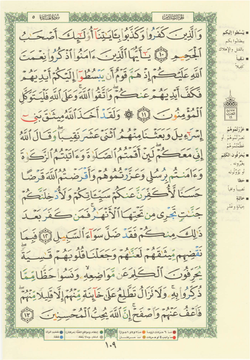 وَٱلَّذِينَ كَفَرُوا۟ وَكَذَّبُوا۟ بِـَٔايَـٰتِنَآ أُو۟لَـٰٓئِكَ أَصْحَـٰبُ
ٱلْجَحِيمِ ١٠ يَـٰٓأَيُّهَا ٱلَّذِينَ ءَامَنُوا۟ ٱذْكُرُوا۟ نِعْمَتَ
ٱللَّهِ عَلَيْكُمْ إِذْ هَمَّ قَوْمٌ أَن يَبْسُطُوٓا۟ إِلَيْكُمْ أَيْدِيَهُمْ
فَكَفَّ أَيْدِيَهُمْ عَنكُمْ وَٱتَّقُوا۟ ٱللَّهَ وَعَلَى ٱللَّهِ فَلْيَتَوَكَّلِ
ٱلْمُؤْمِنُونَ ١١ وَلَقَدْ أَخَذَ ٱللَّهُ مِيثَـٰقَ بَنِىٓ
إِسْرَٰٓءِيلَ وَبَعَثْنَا مِنْهُمُ ٱثْنَىْ عَشَرَ نَقِيبًا وَقَالَ ٱللَّهُ
إِنِّى مَعَكُمْ لَئِنْ أَقَمْتُمُ ٱلصَّلَوٰةَ وَءَاتَيْتُمُ ٱلزَّكَوٰةَ
وَءَامَنتُم بِرُسُلِى وَعَزَّرْتُمُوهُمْ وَأَقْرَضْتُمُ ٱللَّهَ قَرْضًا
حَسَنًا لَّأُكَفِّرَنَّ عَنكُمْ سَيِّـَٔاتِكُمْ وَلَأُدْخِلَنَّكُمْ
جَنَّـٰتٍ تَجْرِى مِن تَحْتِهَا ٱلْأَنْهَـٰرُ فَمَن كَفَرَ بَعْدَ
ذَٰلِكَ مِنكُمْ فَقَدْ ضَلَّ سَوَآءَ ٱلسَّبِيلِ ١٢ فَبِمَا
نَقْضِهِم مِّيثَـٰقَهُمْ لَعَنَّـٰهُمْ وَجَعَلْنَا قُلُوبَهُمْ قَـٰسِيَةً
يُحَرِّفُونَ ٱلْكَلِمَ عَن مَّوَاضِعِهِۦ وَنَسُوا۟ حَظًّا مِّمَّا
ذُكِّرُوا۟ بِهِۦ وَلَا تَزَالُ تَطَّلِعُ عَلَىٰ خَآئِنَةٍ مِّنْهُمْ إِلَّا قَلِيلًا مِّنْهُمْ
فَٱعْفُ عَنْهُمْ وَٱصْفَحْ إِنَّ ٱللَّهَ يُحِبُّ ٱلْمُحْسِنِينَ ١٣
١٠٩